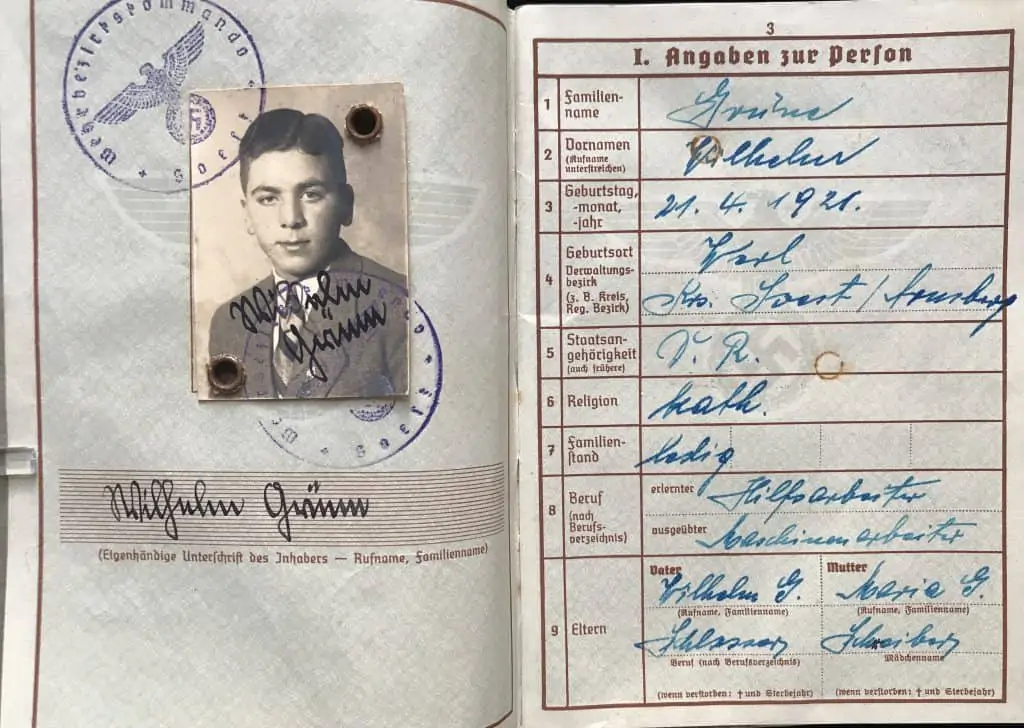 Wehrbezirkskommando * Soest *
Wilhelm
Grüne
Wilhelm Grüne
(Eigenhändige Unterschrift des Inhabers — Rufname, Familienname)
3
I. Angaben zur Person
1 Familien-
name Grüne
2 Vornamen
(Rufname
unterstreichen) Wilhelm
3 Geburtstag,
-monat,
-jahr 21. 4. 1921.
4 Geburtsort Werl
Verwaltungs-
bezirk
(z. B. Kreis,
Reg. Bezirk) Krs. Soest / Arnsberg
5 Staatsan-
gehörigkeit
(auch frühere) D. R.
6 Religion kath.
7 Familien-
stand ledig
8 Beruf
(nach
Berufs-
verzeichnis)
erlernter Hilfsarbeiter
ausgeübter Maschinenarbeiter
9 Eltern
Vater Mutter
Wilhelm G. Maria G.
(Rufname, Familienname) (Rufname, Familienname)
Schlosser Schreiber
Beruf (nach Berufsverzeichnis) Mädchenname
(wenn verstorben: † und Sterbejahr) (wenn verstorben: † und Sterbejahr)